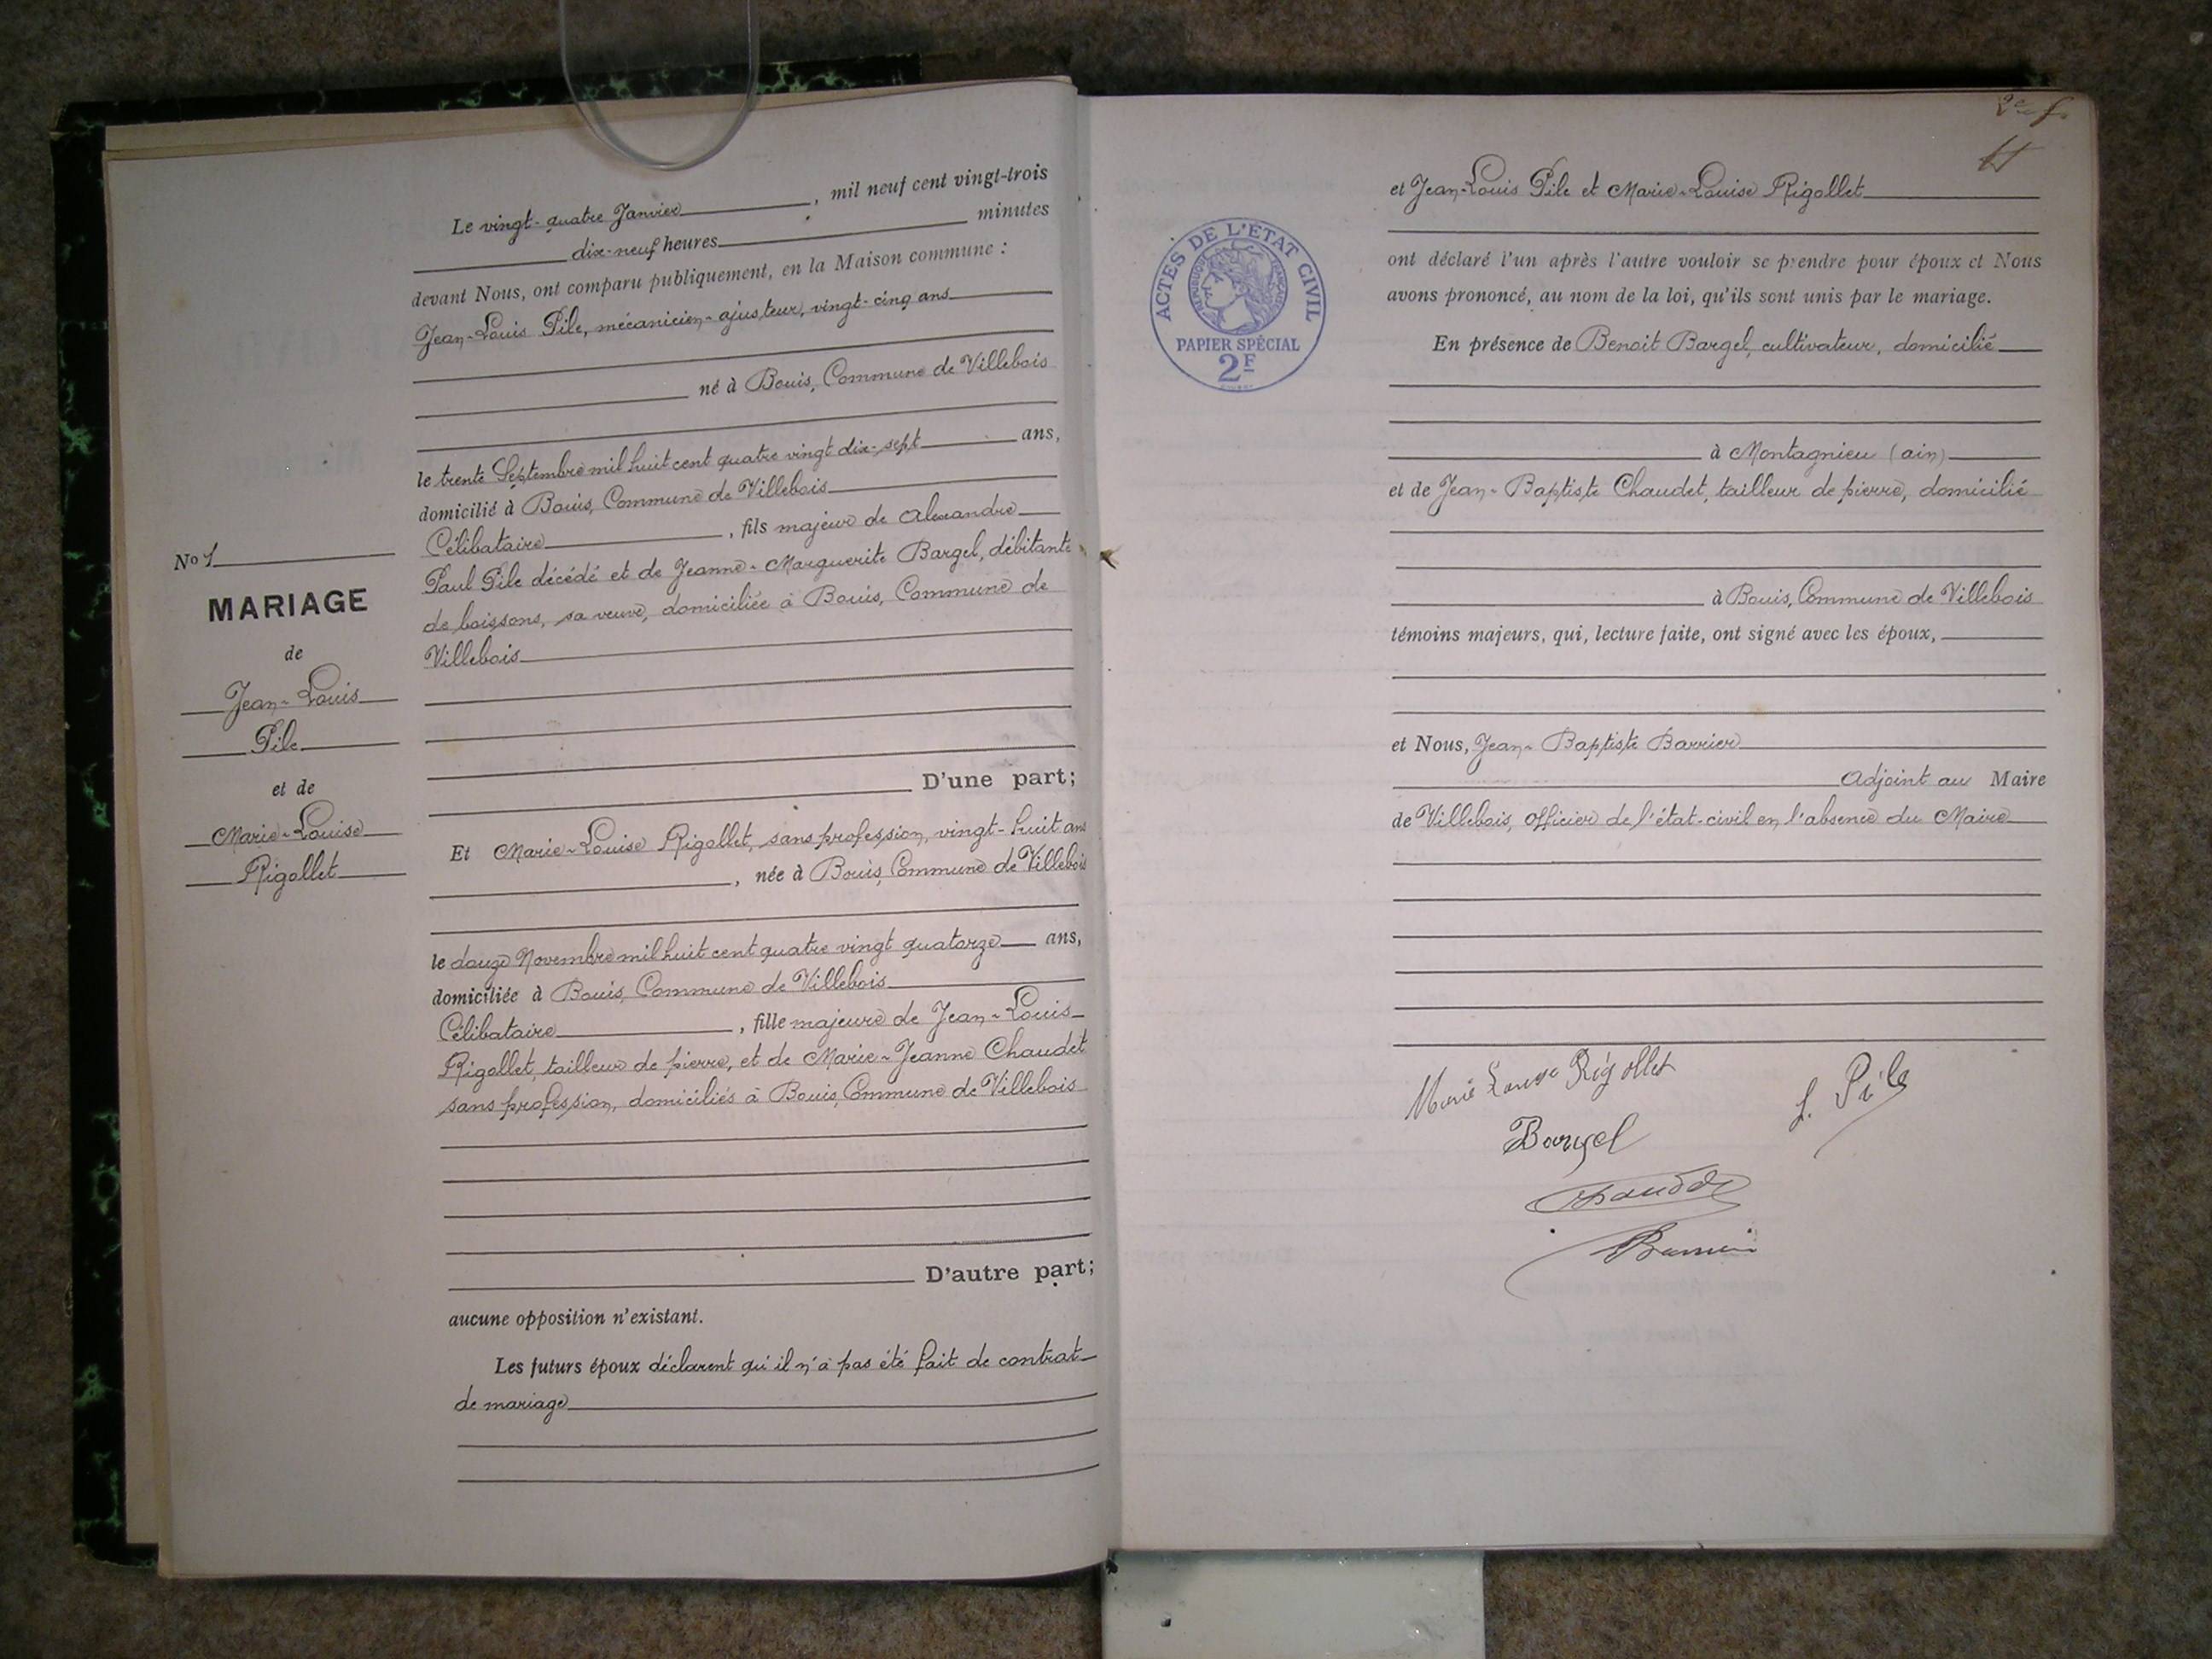 Le vingt-quatre Janvier, mil neuf cent vingt-trois
dix-neuf heures minutes
devant Nous, ont comparu publiquement, en la Maison commune :
Jean-Louis Pile, mécanicien-ajusteur, vingt-cinq ans
né à Bouis, Commune de Villebois
le trente Septembre mil huit cent quatre vingt dix-sept ans,
domicilié à Bouis, Commune de Villebois
Célibataire, fils majeur de Alexandre
Paul Pile décédé et de Jeanne-Marguerite Bargel, débitante
de boissons, sa veuve, domiciliée à Bouis, Commune de
Villebois
D'une part;
No 1
MARIAGE
de
Jean-Louis
Pile
et de
Marie-Louise
Rigollet
Et Marie-Louise Rigollet, sans profession, vingt-huit ans
, née à Bouis, Commune de Villebois
le douze Novembre mil huit cent quatre vingt quatorze ans,
domiciliée à Bouis, Commune de Villebois
Célibataire, fille majeure de Jean-Louis
Rigollet, tailleur de pierre, et de Marie-Jeanne Chaudet
sans profession, domiciliés à Bouis, Commune de Villebois
D'autre part;
aucune opposition n'existant.
Les futurs époux déclarent qu'il n'a pas été fait de contrat
de mariage
2e f.
ACTES DE L'ÉTAT CIVIL
RÉPUBLIQUE FRANÇAISE
PAPIER SPÉCIAL
2F
et Jean-Louis Pile et Marie-Louise Rigollet
ont déclaré l'un après l'autre vouloir se prendre pour époux et Nous
avons prononcé, au nom de la loi, qu'ils sont unis par le mariage.
En présence de Benoit Bargel, cultivateur, domicilié
à Montagnieu (ain)
et de Jean-Baptiste Chaudet, tailleur de pierre, domicilié
à Bouis, Commune de Villebois
témoins majeurs, qui, lecture faite, ont signé avec les époux,
et Nous, Jean-Baptiste Barrier
Adjoint au Maire
de Villebois, officier de l'état-civil en l'absence du Maire
Marie Louise Rigollet
L. Pile
Bargel
Chaudet
Barrier